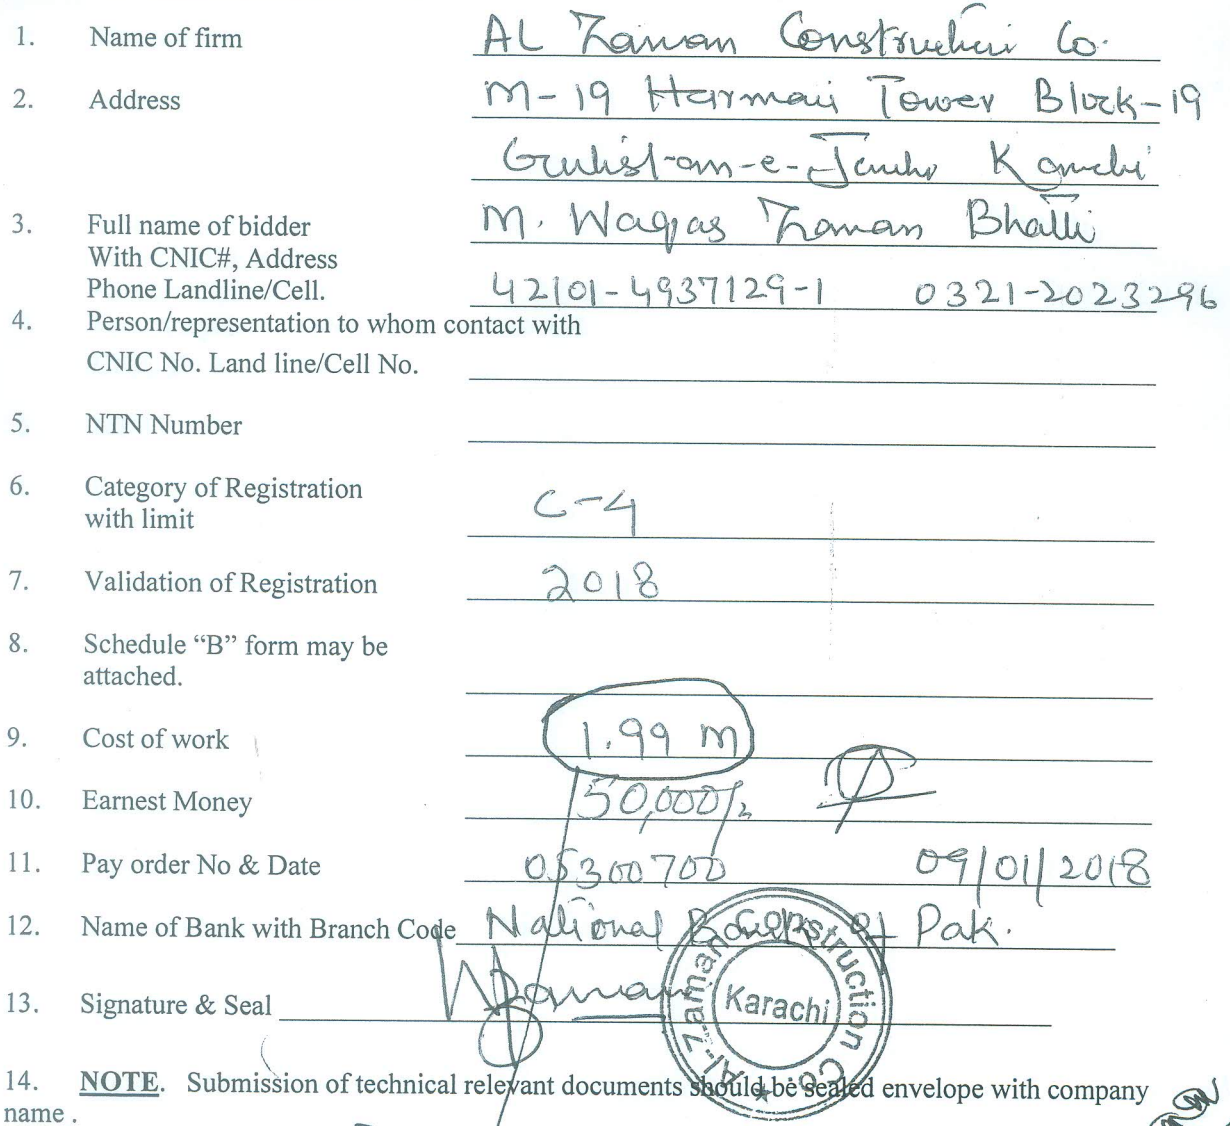 1. Name of firm AL Zaman Construction Co.
2. Address M-19 Harmain Tower Block-19
Gulist-an-e-Jauhr Karachi
3. Full name of bidder M. Waqas Zaman Bhatti
With CNIC#, Address
Phone Landline/Cell. 42101-4937129-1 0321-2023296
4. Person/representation to whom contact with
CNIC No. Land line/Cell No.
5. NTN Number
6. Category of Registration C-4
with limit
7. Validation of Registration 2018
8. Schedule “B” form may be
attached.
9. Cost of work 1.99 m
10. Earnest Money 50,000/=
11. Pay order No & Date 05300700 09/01/2018
12. Name of Bank with Branch Code National Bank of Pak.
13. Signature & Seal Zaman
Al-Zaman Construction Co.
Karachi
14. NOTE. Submission of technical relevant documents should be sealed envelope with company
name .